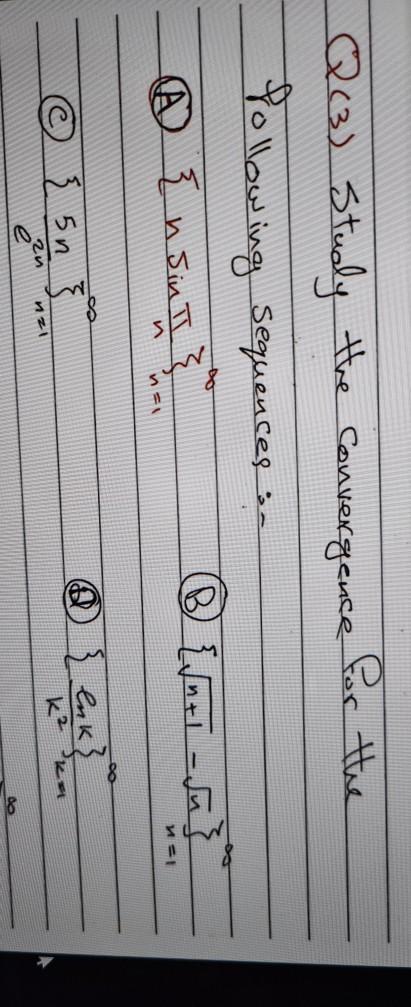 Q(3) Study the Convergence for the
following sequences :-
(A) { n Sin π/n }∞ n=1
(B) { √n+1 - √n }∞ n=1
(C) { 5n / e^2n }∞ n=1
(D) { ln k / k² }∞ k=1
∞